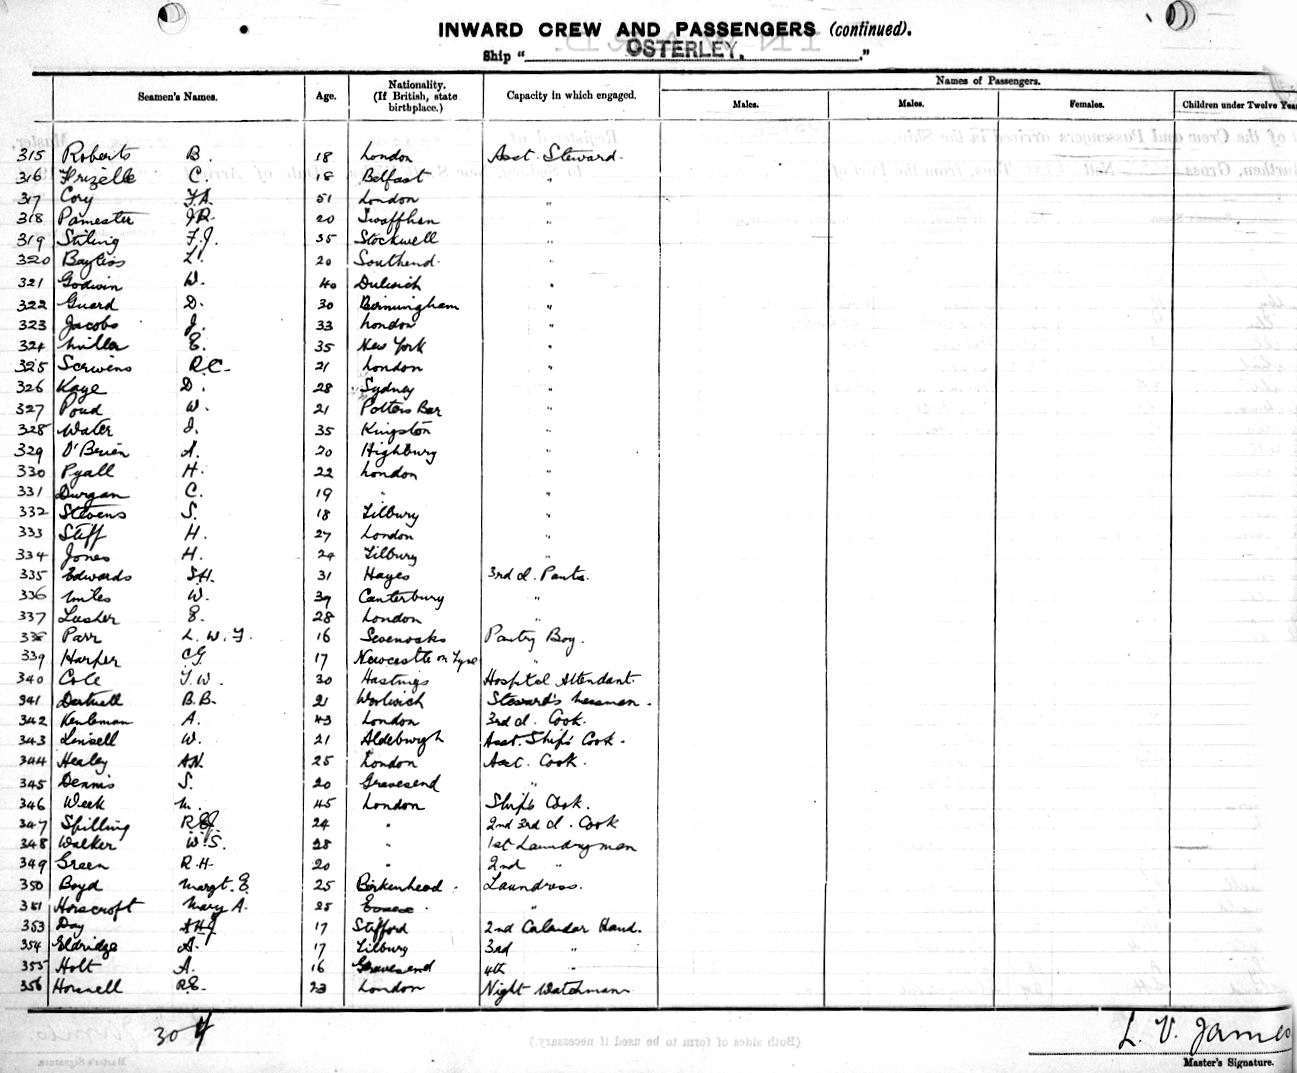 INWARD CREW AND PASSENGERS (continued).
Ship "OSTERLEY."
Seamen's Names. Age. Nationality. (If British, state birthplace.) Capacity in which engaged. Names of Passengers.
Males. Males. Females. Children under Twelve Yea
315 Roberts B. 18 London Asst. Steward.
316 Frizelle C. 18 Belfast "
317 Cory F.A. 51 London "
318 Pamester J.R. 20 Swaffhan "
319 Stiling F.J. 35 Stockwell "
320 Bayliss L. 20 Southend "
321 Godwin W. 40 Dulwich "
322 Guard D. 30 Birmingham "
323 Jacobs J. 33 London "
324 Miller E. 35 New York "
325 Scrivens R.C. 21 London "
326 Kaye D. 28 Sydney "
327 Poud W. 21 Potters Bar "
328 Water J. 35 Kingston "
329 O'Brien A. 20 Highbury "
330 Pyall H. 22 London "
331 Durgan C. 19 " "
332 Stevens S. 18 Tilbury "
333 Stiff H. 27 London "
334 Jones H. 24 Tilbury "
335 Edwards S.H. 31 Hayes 3rd cl. Pants.
336 Miles W. 39 Canterbury "
337 Lusher E. 28 London "
338 Parr L. W. F. 16 Sevenoaks Pantry Boy.
339 Harper C.G. 17 Newcastle on Tyne "
340 Cole T.W. 30 Hastings Hospital Attendant.
341 Dartnall B.B. 21 Woolwich Steward's Messman.
342 Kenleman A. 43 London 3rd cl. Cook.
343 Linsell W. 21 Aldeburgh Asst. Ship's Cook.
344 Healey A.N. 25 London Asst. Cook.
345 Dennis S. 20 Gravesend "
346 Week M. 45 London Ship's Cook.
347 Spilling 24 " 2nd 3rd cl. Cook
348 Walker W.S. 28 " 1st Laundryman
349 Green R.H. 20 " 2nd "
350 Boyd Margt. E. 25 Birkenhead. Laundress.
351 Horscroft Mary A. 25 Essex. "
353 Day 17 Stifford 2nd Calander Hand.
354 Eldridge A. 17 Tilbury 3rd "
355 Holt A. 16 Gravesend 4th "
356 Horsnell R.E. 23 London Night Watchman
304
L. V. James
Master's Signature.
(Both sides of form to be used if necessary.)